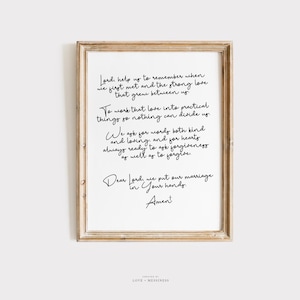 Lord, help us to remember when
we first met and the strong love
that grew between us.
To work that love into practical
things so nothing can divide us.
We ask for words both kind
and loving, and for hearts
always ready to ask forgiveness
as well as to forgive.
Dear Lord, we put our marriage
in Your hands.
Amen!
LOVE + BLESSINGS